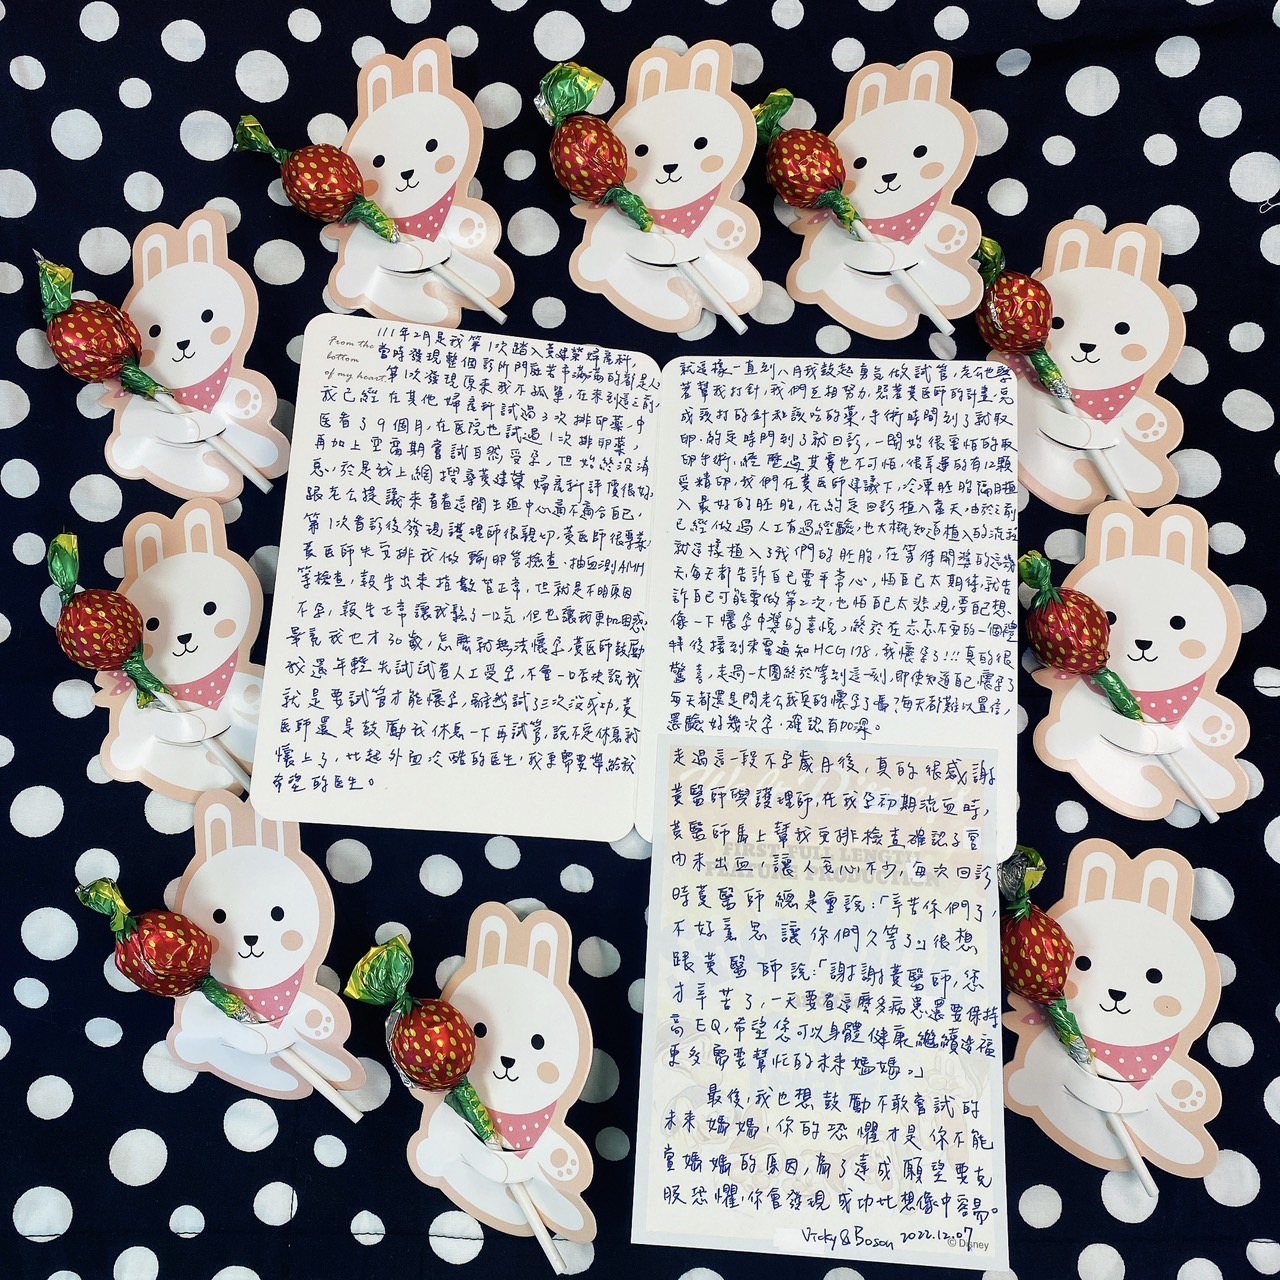 From the
bottom
of my heart.
111年2月是我第1次踏入黃建榮婦產科,
當時發現整個診所門庭若市滿滿的都是人
第1次發現原來我不孤單,在來到這之前,
我已經在其他婦產科試過3次排卵藥,中
醫看了9個月,在医院也試過1次排卵藥,
再加上空窗期嘗試自然受孕,但始終沒消
息,於是我上網搜尋黃建榮婦產科評價很好,
跟老公提議來看看這間生殖中心適不適合自己,
第1次看診後發現護理師很親切,黃医師很專業,
黃医師先安排我做輸卵管檢查、抽血測AMH
等檢查,報告出來指數皆正常,但就是不明原因
不孕,報告正常讓我鬆了一口氣,但也讓我更加困惑,
畢竟我也才30歲,怎麼就無法懷孕,黃医師鼓勵
我還年輕先試試看人工受孕,不會一口否決說我
就是要試管才能懷孕,雖然試了三次沒成功,黃
医師還是鼓勵我休息一下再試管,說不定休息就
懷上了,比起外面冷酷的医生,我更需要帶給我
希望的医生。
就這樣一直到八月我鼓起勇氣做試管,先生也學
著幫我打針,我們互相努力,照著黃医師的計畫,完
成該打的針和該吃的藥,手術時間到了就取
卵,約定時間到了就回診,一開始很害怕的取
卵手術,經歷過其實也不可怕,很幸運的有12顆
受精卵,我們在黃医師建議下,冷凍胚胎隔月植
入最好的胚胎,在約定回診植入當天,由於之前
已經做過人工有過經驗,也大概知道植入的流程
就這樣植入了我們的胚胎,在等待開獎的這幾
天,每天都告訴自己要平常心,怕自己太期待,就告
訴自己可能要做第2次,也怕自己太悲觀,要自己想
像一下懷孕中獎的喜悅,終於在忐忑不安的一個禮
拜後接到來電通知HCG 178,我懷孕了!!!真的很
驚喜,走過一大圈終於等到這一刻,即使知道自己懷孕了
每天都還是問老公我真的懷孕了嗎?每天都難以置信,
還驗好幾次孕,確認有加深。
走過這一段不孕歲月後,真的很感謝
黃醫師與護理師,在我孕初期流血時,
黃醫師馬上幫我安排檢查確認子宮
內未出血,讓人安心不少,每次回診
時黃醫師總是會說:「辛苦你們了,
不好意思讓你們久等了」很想
跟黃醫師說:「謝謝黃醫師,您
才辛苦了,一天要看這麼多病患還要保持
高EQ,希望您可以身體健康繼續造福
更多需要幫忙的未來媽媽。」
最後,我也想鼓勵不敢嘗試的
未來媽媽,你的恐懼才是你不能
當媽媽的原因,為了達成願望要克
服恐懼,你會發現成功比想像中容易。
Vicky & Boson 2022.12.07
© Disney
FIRST FULL LENGTH
FEATURE PRODUCTION